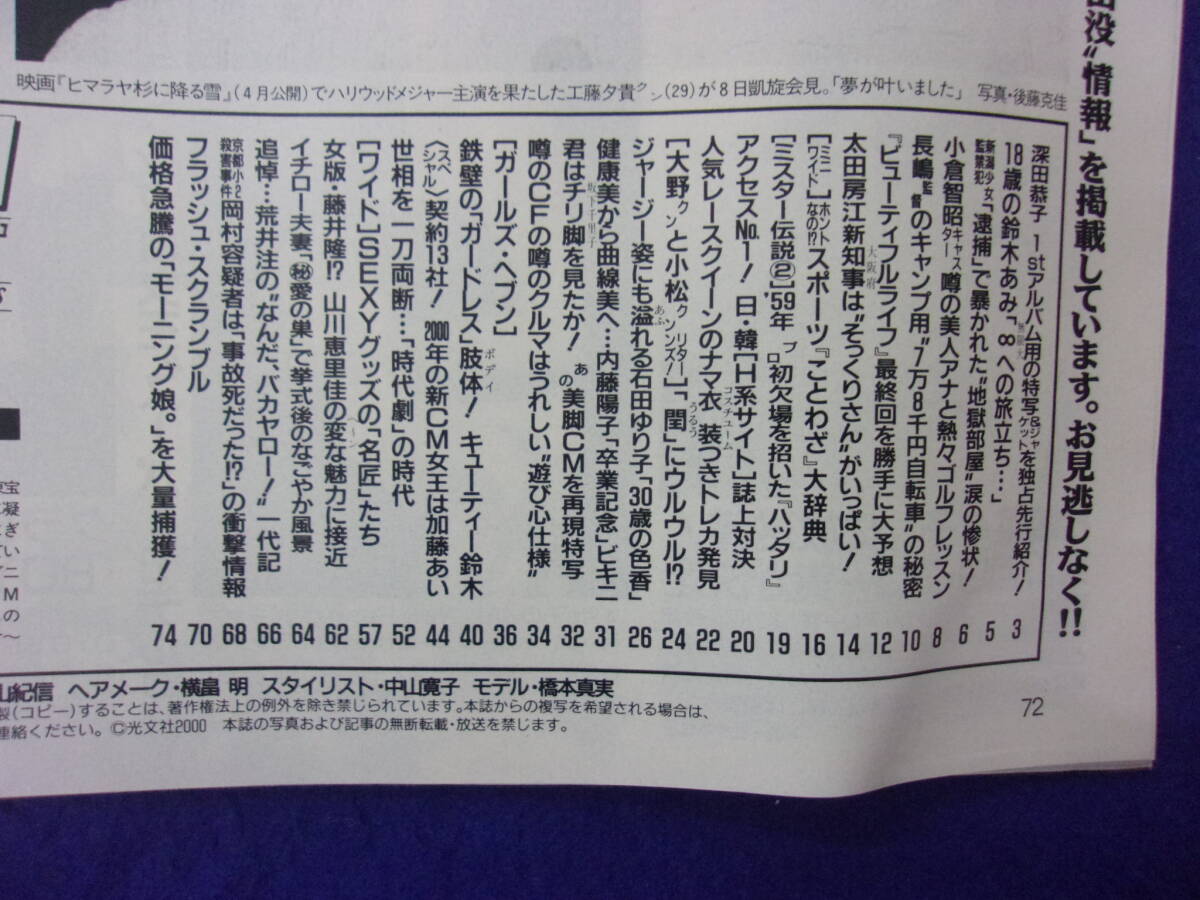 出没“情報”を掲載しています。お見逃しなく!!
映画『ヒマラヤ杉に降る雪』(4月公開)でハリウッドメジャー主演を果たした工藤夕貴クン(29)が8日凱旋会見。「夢が叶いました」 写真・後藤克佳
深田恭子 1stアルバム用の特写&ジャケットを独占先行紹介! 3
18歳の鈴木あみ「∞への旅立ち…」 5
新潟少女監禁犯「逮捕」で暴かれた“地獄部屋”涙の惨状! 6
小倉智昭キャスター 噂の美人アナと熱々ゴルフレッスン 8
長嶋監督のキャンプ用“7万8千円自転車”の秘密 10
『ビューティフルライフ』最終回を勝手に大予想 12
太田房江新知事は“そっくりさん”がいっぱい! 14
[ミニワイド]ホントなの!?スポーツ『ことわざ』大辞典 16
[ミスター伝説②]'59年 プロ初欠場を招いた『ハッタリ』 19
アクセスNo.1! 日・韓[H系サイト]誌上対決 20
人気レースクイーンのナマ衣装つきトレカ発見 22
[大野クンと小松クン リターンズ!]「閏」にウルウル!? 24
ジャージー姿にも溢れる石田ゆり子「30歳の色香」 26
健康美から曲線美へ…内藤陽子「卒業記念」ビキニ 31
君はチリ脚を見たか! あの美脚CMを再現特写 32
噂のCFの噂のクルマはうれしい“遊び心仕様” 34
[ガールズ・ヘブン] 36
鉄壁の「ガードレス」肢体! キューティー鈴木 40
〈スペシャル〉契約13社! 2000年の新CM女王は加藤あい 44
世相を一刀両断…「時代劇」の時代 52
[ワイド]SEXYグッズの「名匠」たち 57
女版・藤井隆!? 山川恵里佳の変な魅力に接近 62
イチロー夫妻「㊙愛の巣」で挙式後のなごやか風景 64
追悼…荒井注の“なんだ、バカヤロー!”一代記 66
京都小2殺害事件 岡村容疑者は「事故死だった!?」の衝撃情報 68
フラッシュ・スクランブル 70
価格急騰の「モーニング娘。」を大量捕獲! 74
山紀信 ヘアメーク・横畠 明 スタイリスト・中山寛子 モデル・橋本真実
製(コピー)することは、著作権法上の例外を除き禁じられています。本誌からの複写を希望される場合は、
連絡ください。©光文社2000 本誌の写真および記事の無断転載・放送を禁じます。
72